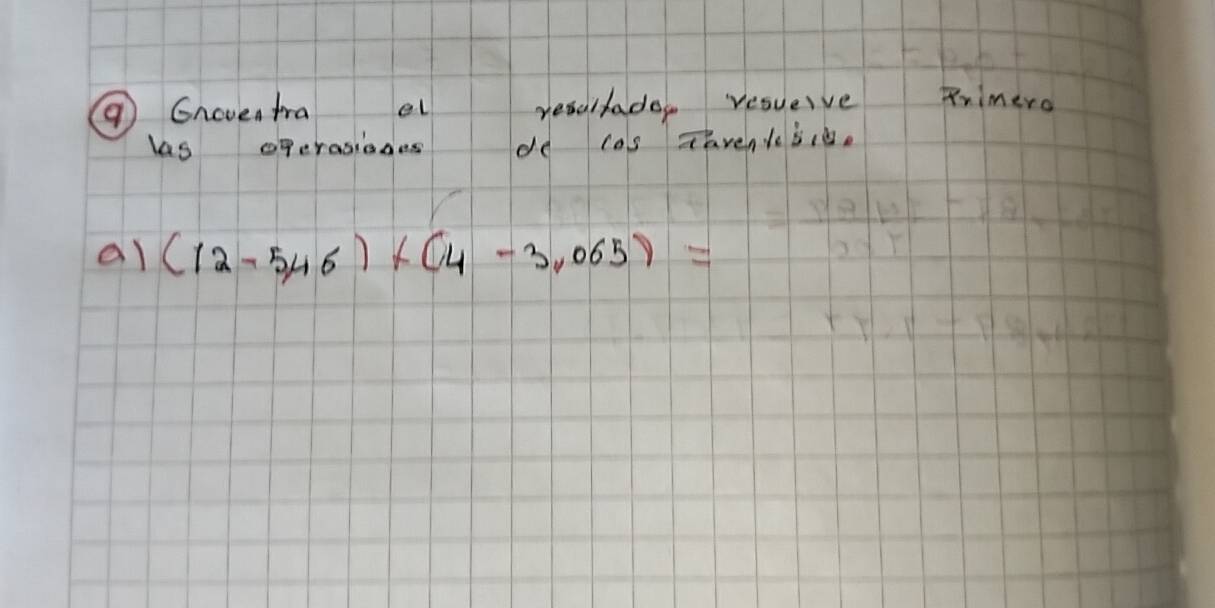 9 Encuentra el resultado, resuelve Primero
las operasiones de los Parentesis.
a) (12 - 5,46) + (4 - 3,065) =